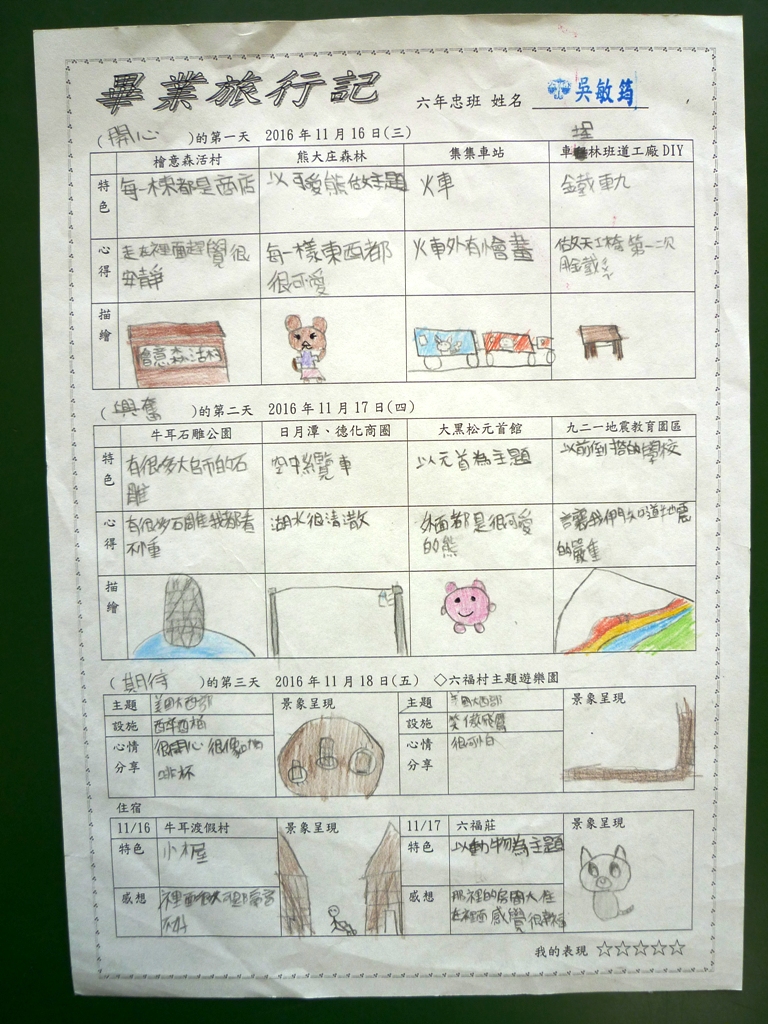 畢業旅行記
六年忠班 姓名 吳敏筠
(開心)的第一天 2016年11月16日(三)
檜意森活村 熊大庄森林 集集車站 車埕林班道工廠DIY
特色 每一棟都是商店 以可愛熊做主題 火車 鐵軌
心得 走在裡面趕覺很 每一樣東西都 火車外有小繪畫 做天工椅第一次
安靜 很可愛 用金鐵
描繪
會意森活村
(興奮)的第二天 2016年11月17日(四)
牛耳石雕公園 日月潭、德化商圈 大黑松元首館 九二一地震教育園區
特色 有很多大師的石 空中纜車 以元首為主題 以前倒塌的學校
雕
心得 有很多石雕我都看 湖水很清澈 外面都是很可愛 讓我們知道地震
不懂 的熊 的嚴重
描繪
(期待)的第三天 2016年11月18日(五) ◇六福村主題遊樂園
主題 美國大西部 景象呈現 主題 美國大西部 景象呈現
設施 醉酒桶 設施 笑傲飛鷹
心情分享 很開心很像 心情分享 很可怕
啡杯
住宿
11/16 牛耳渡假村 景象呈現 11/17 六福莊 景象呈現
特色 小木屋 特色 以動物為主題
感想 裡面很大可 感想 那裡的房間大住
在裡面感覺很幸福
我的表現 ☆☆☆☆☆